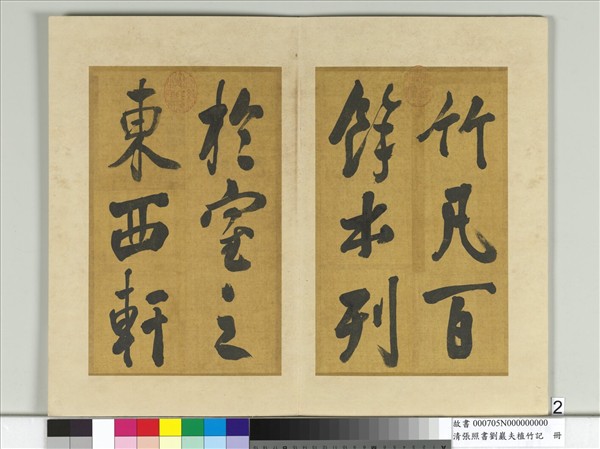 竹凡百
餘本列
於室之
東西軒
2
故書 000705N000000000
清張照書劉巖夫植竹記 冊